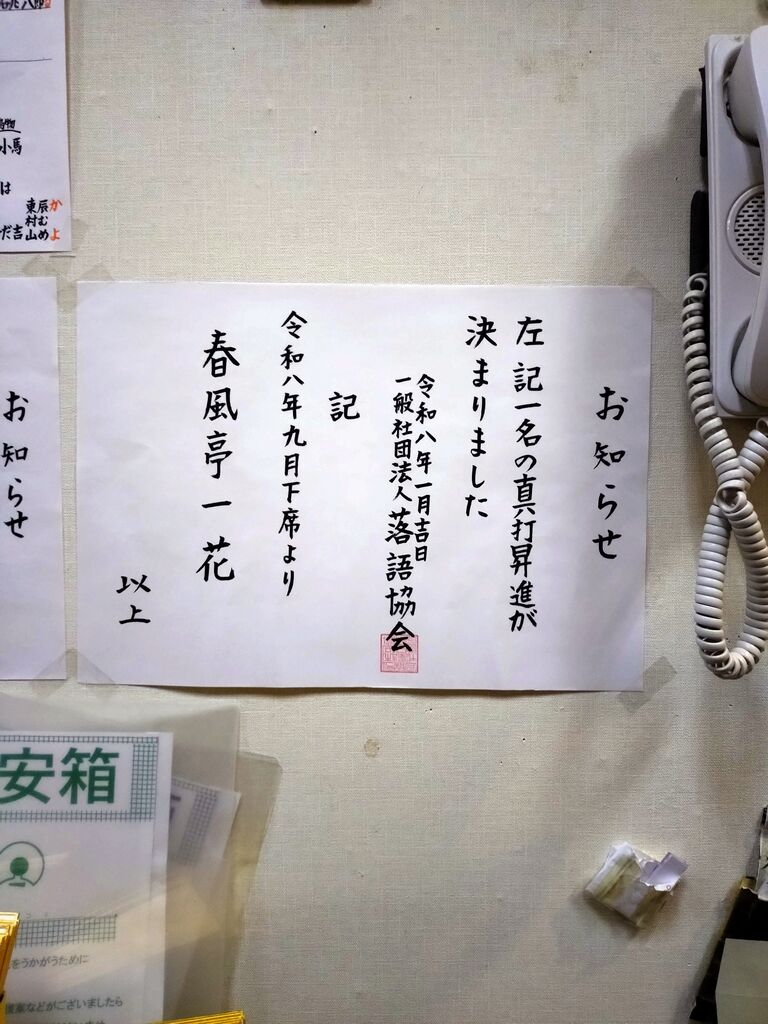 お知らせ
左記一名の真打昇進が
決まりました
令和八年一月吉日
一般社団法人落語協会
記
令和八年九月下席より
春風亭一花
以上
お知らせ
小馬
は
だ吉
東村山
辰むめ
かよ
安箱
をうかがうために
提案などがございましたら